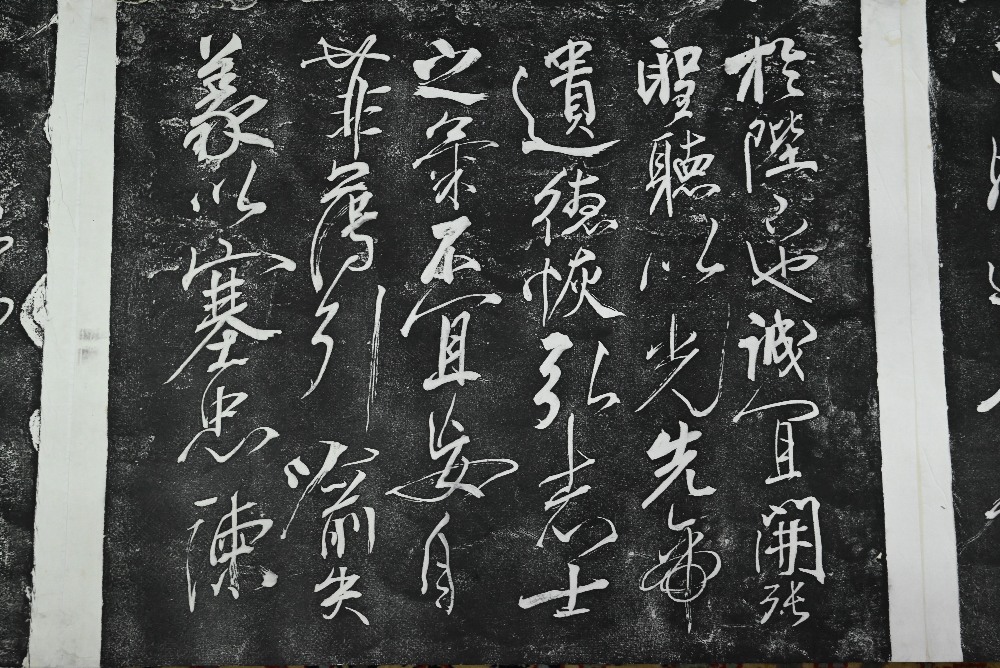 於陛下也誠宜開張
聖聽以光先帝
遺德恢弘志士
之氣不宜妄自
菲薄引喻失
義以塞忠諫